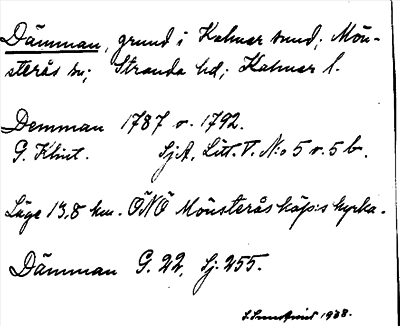 Dämman, grund i Kalmar sund; Mön-
sterås sn; Stranda hd; Kalmar l.
Demman 1787 o. 1792.
G. Klint. SjA, Litt. V. N:o 5 o. 5 b.
Läge 13,8 km. ÖNÖ Mönsterås köp:s kyrka.
Dämman G. 22, Sj. 255.
1938.